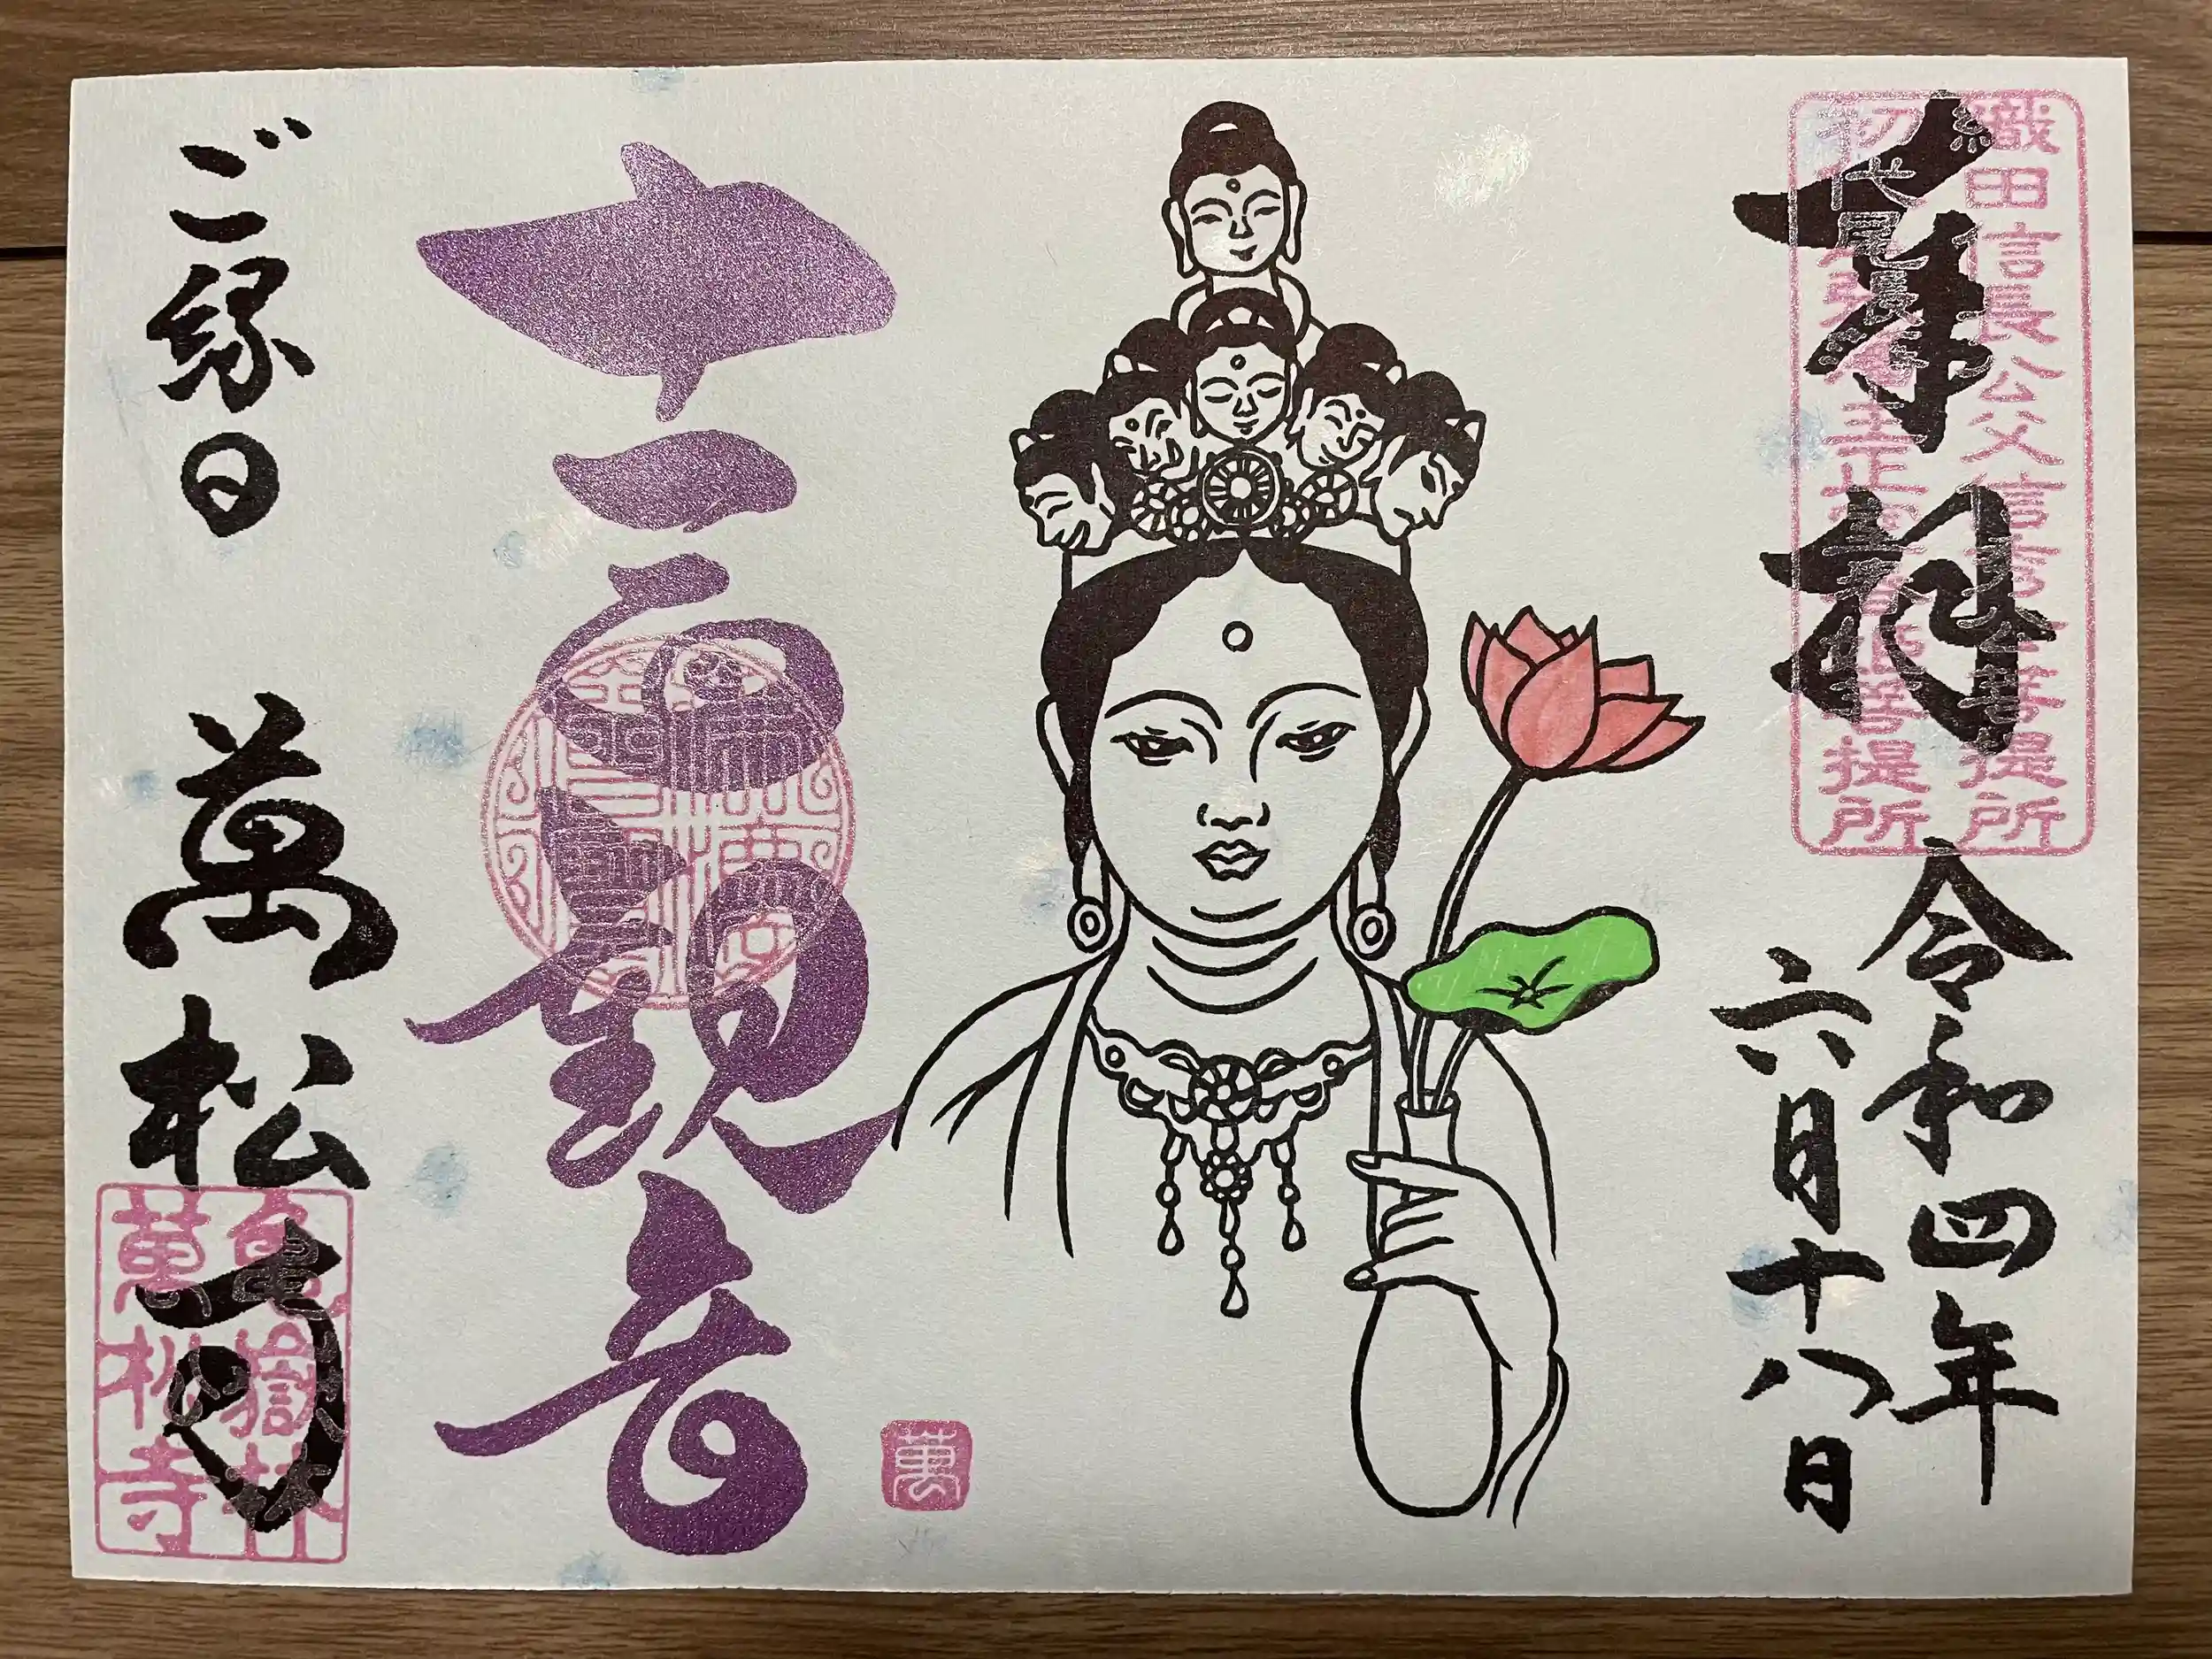 奉拝
織田信長公父信秀公菩提所
初代尾張 正室春姫菩提所
令和四年
六月十八日
十一面観音
萬
ご縁日 萬松寺
亀嶽林
萬松寺